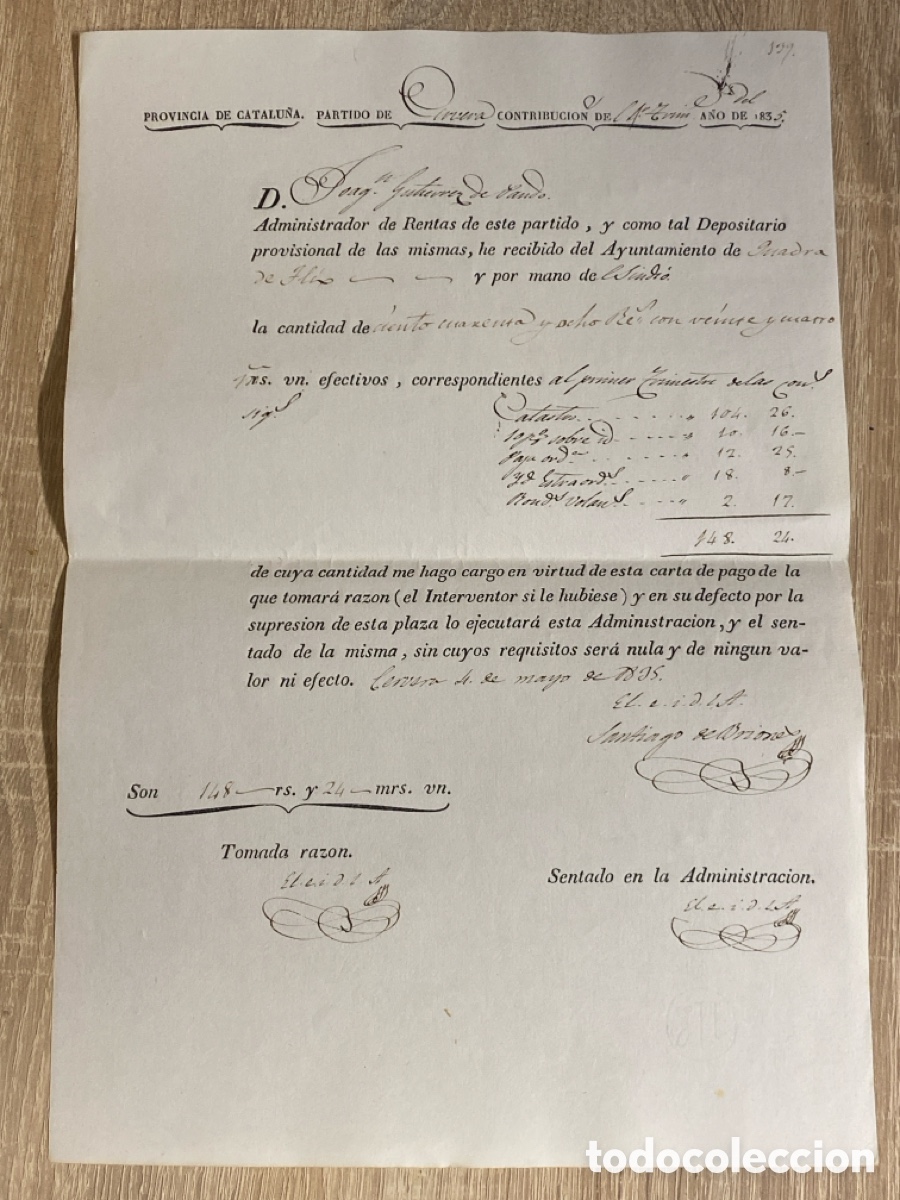 139.
PROVINCIA DE CATALUÑA. PARTIDO DE Cervera CONTRIBUCION DE Trim.e del AÑO DE 1835.
D. Joaq.n Gutierrez de Pando.
Administrador de Rentas de este partido, y como tal Depositario
provisional de las mismas, he recibido del Ayuntamiento de Quadra
de Flix y por mano de
la cantidad de ciento cuarenta y ocho R.s con veinte y cuatro
mrs. vn. efectivos, correspondientes al primer Trimestre de las Con.s
sig.s
Catastro 104. 26.
10 p% sobre id 10. 16.
Paja ord. 12. 25.
Yd Estraord. 18. 8.
Rond.s Volan.s 2. 17.
148. 24.
de cuya cantidad me hago cargo en virtud de esta carta de pago de la
que tomará razon (el Interventor si le hubiese) y en su defecto por la
supresion de esta plaza lo ejecutará esta Administracion, y el sen-
tado de la misma, sin cuyos requisitos será nula y de ningun va-
lor ni efecto. Cervera 4. de mayo de 1835.
El. e. i. d. l A.
Santiago de Briones
Son 148 rs. y 24 mrs. vn.
Tomada razon.
El. e. i. d. l A.
Sentado en la Administracion.
El. e. i. d. l A.
todocoleccion